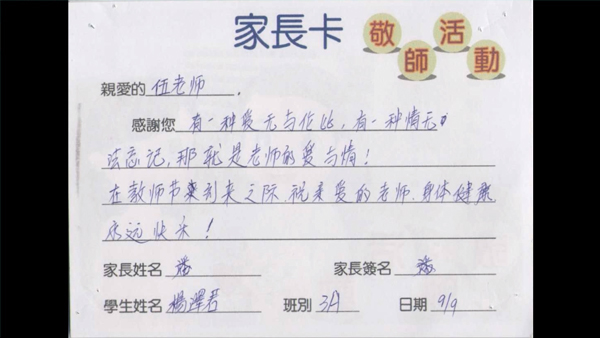 家長卡 敬師活動
親愛的 伍老师，
感謝您 有一种爱无与伦比，有一种情无
法忘记，那就是老师的爱与情！
在教师节来到来之际，祝亲爱的老师，身体健康
永远快乐！
家長姓名 家長簽名
學生姓名 楊澤君 班別 3A 日期 9/9